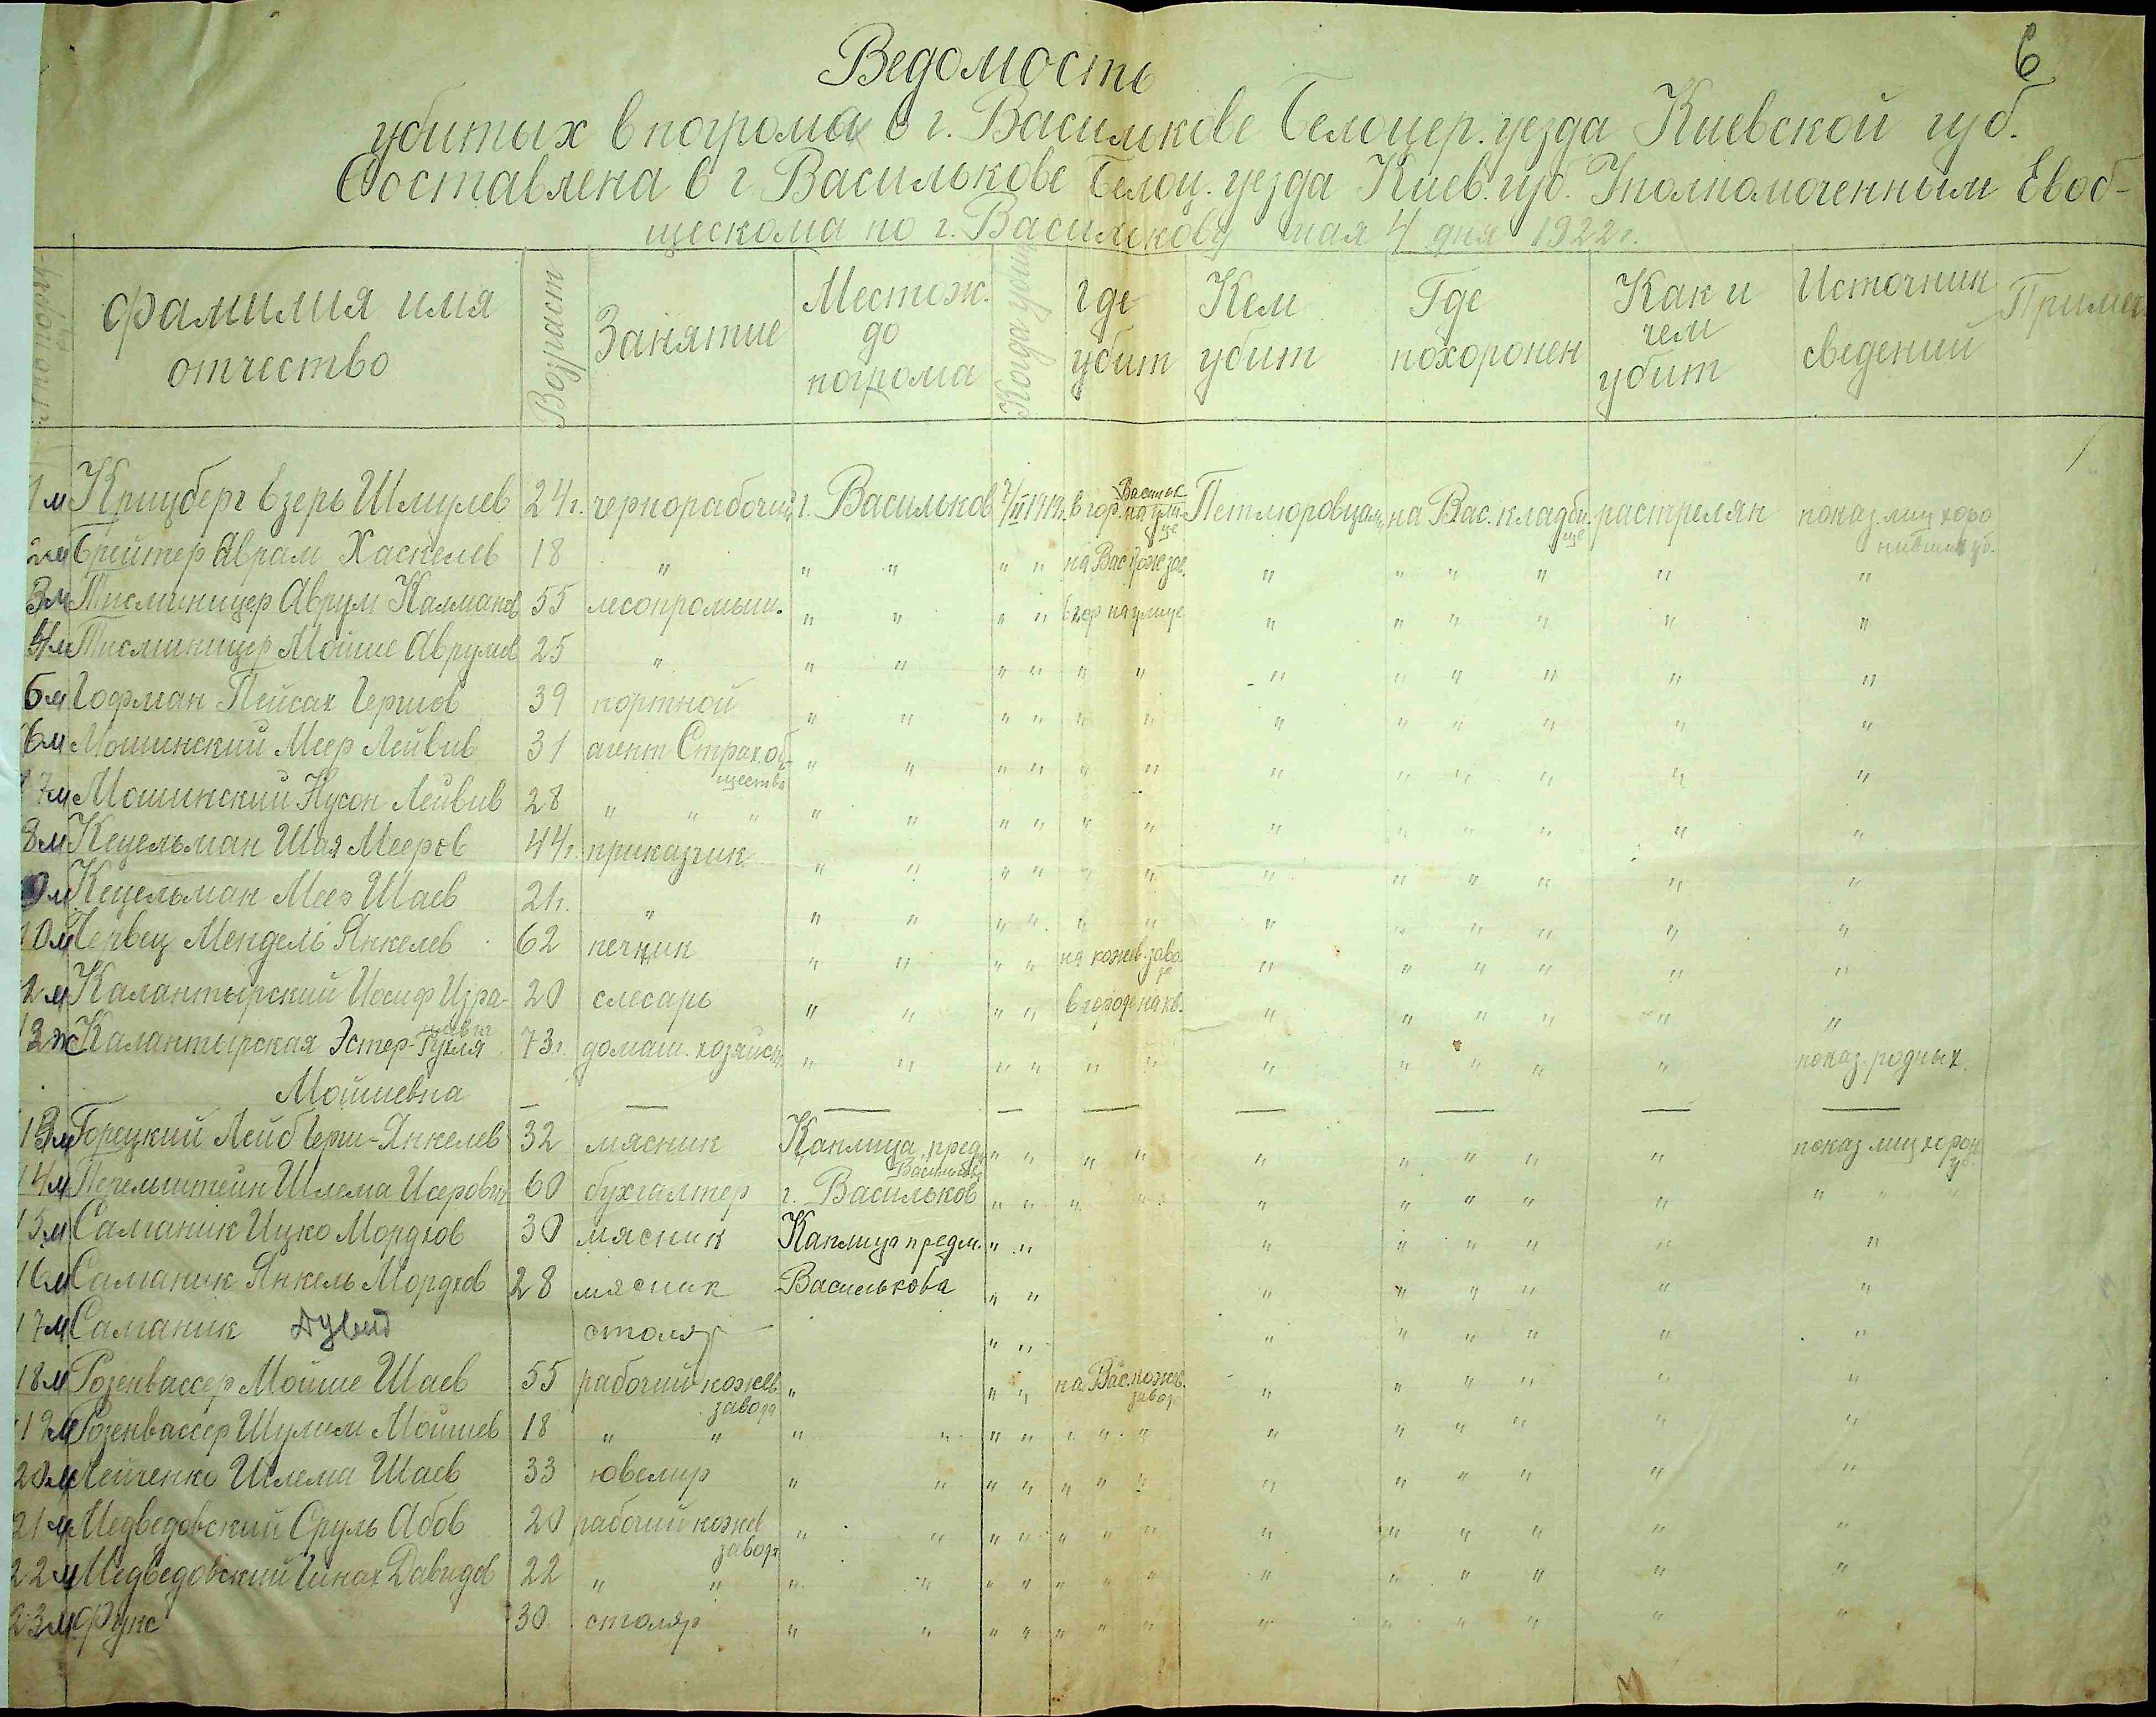 6
Ведомость
убитых в погрома в г. Василькове Белоцер. уезда Киевской губ.
Составлена в г. Василькове Белоц. уезда Киев. губ. Уполномоченным Евоб-
щескома по г. Василькову мая 4 дня 1922 г.
Фамилия имя отчество Возраст Занятие Местож. до погрома Когда убит Где убит Кем убит Где похоронен Как и чем убит Источник сведений Примеч
1 м Крицберг Взерь Шмулев 24 г. чернорабочий г. Васильков 7/II 1919 г. в гор. Васильк на улице Петлюровцам на Вас. кладбище растрелян показ. лиц хоронивших уб.
2 м Брейтер Аврам Хаскелев 18 " " " " " на Вас. коже зав. " " " " " "
3 м Тисминицер Аврум Калманов 55 лесопромыш. " " " " в гор на улице " " " " " "
4 м Тисминицер Мойше Аврумов 25 " " " " " " " " " " " " "
5 м Гофман Пейсах Гершов 39 портной " " " " " " " " " " " "
6 м Мошинский Меер Лейвив 31 агент Страх. общества " " " " " " " " " " " "
7 м Мошинский Нусон Лейвив 28 " " " " " " " " " " " " " " "
8 м Кецельман Шая Мееров 44 г. приказчик " " " " " " " " " " " "
9 м Кецельман Меер Шаев 21 г. " " " " " " " " " " " " "
10 м Мендель Янкелев 62 печник " " " " на кожев. заводе " " " " " "
2 м Калантырский Иосиф Изра- 20 слесарь " " " " в городе на кв. " " " " " "
ж Калантырская Эстер-Рухля 73 г. домаш. хозяйст. " " " " " " " " " " " показ. родных
Мойшевна — — — — — — — — —
13 м Горецкий Лейб Герш-Янкелев 32 мясник Каплица пред. Василькова " " " " " " " " " показ лиц хорон. уб.
14 м Пепельштейн Шлема Исерович 60 бухгалтер г. Васильков " " " " " " " " " " " "
15 м Саманик Ицко Мордхов 30 мясник Каплица предм. " " " " " " " "
16 м Саманик Янкель Мордхов 28 мясник Василькова " " " " " " " "
17 м Саманик Дувид столяр " " " " " " " "
18 м Розенвассер Мойше Шаев 55 рабочий кожев завода " " " на Вас. кожев. завод " " " " " "
19 м Розенвассер Шулим Мойшев 18 " " " " " " " " " " " " " " "
20 м Лейченко Шлема Шаев 33 ювелир " " " " " " " " " " " " "
21 м Медведовский Сруль Абов 20 рабочий кожев завода " " " " " " " " " " " " "
22 м Медведовский Гинах Давидов 22 " " " " " " " " " " " " " " "
23 м Фукс 30 столяр " " " " " " " " " " " " "